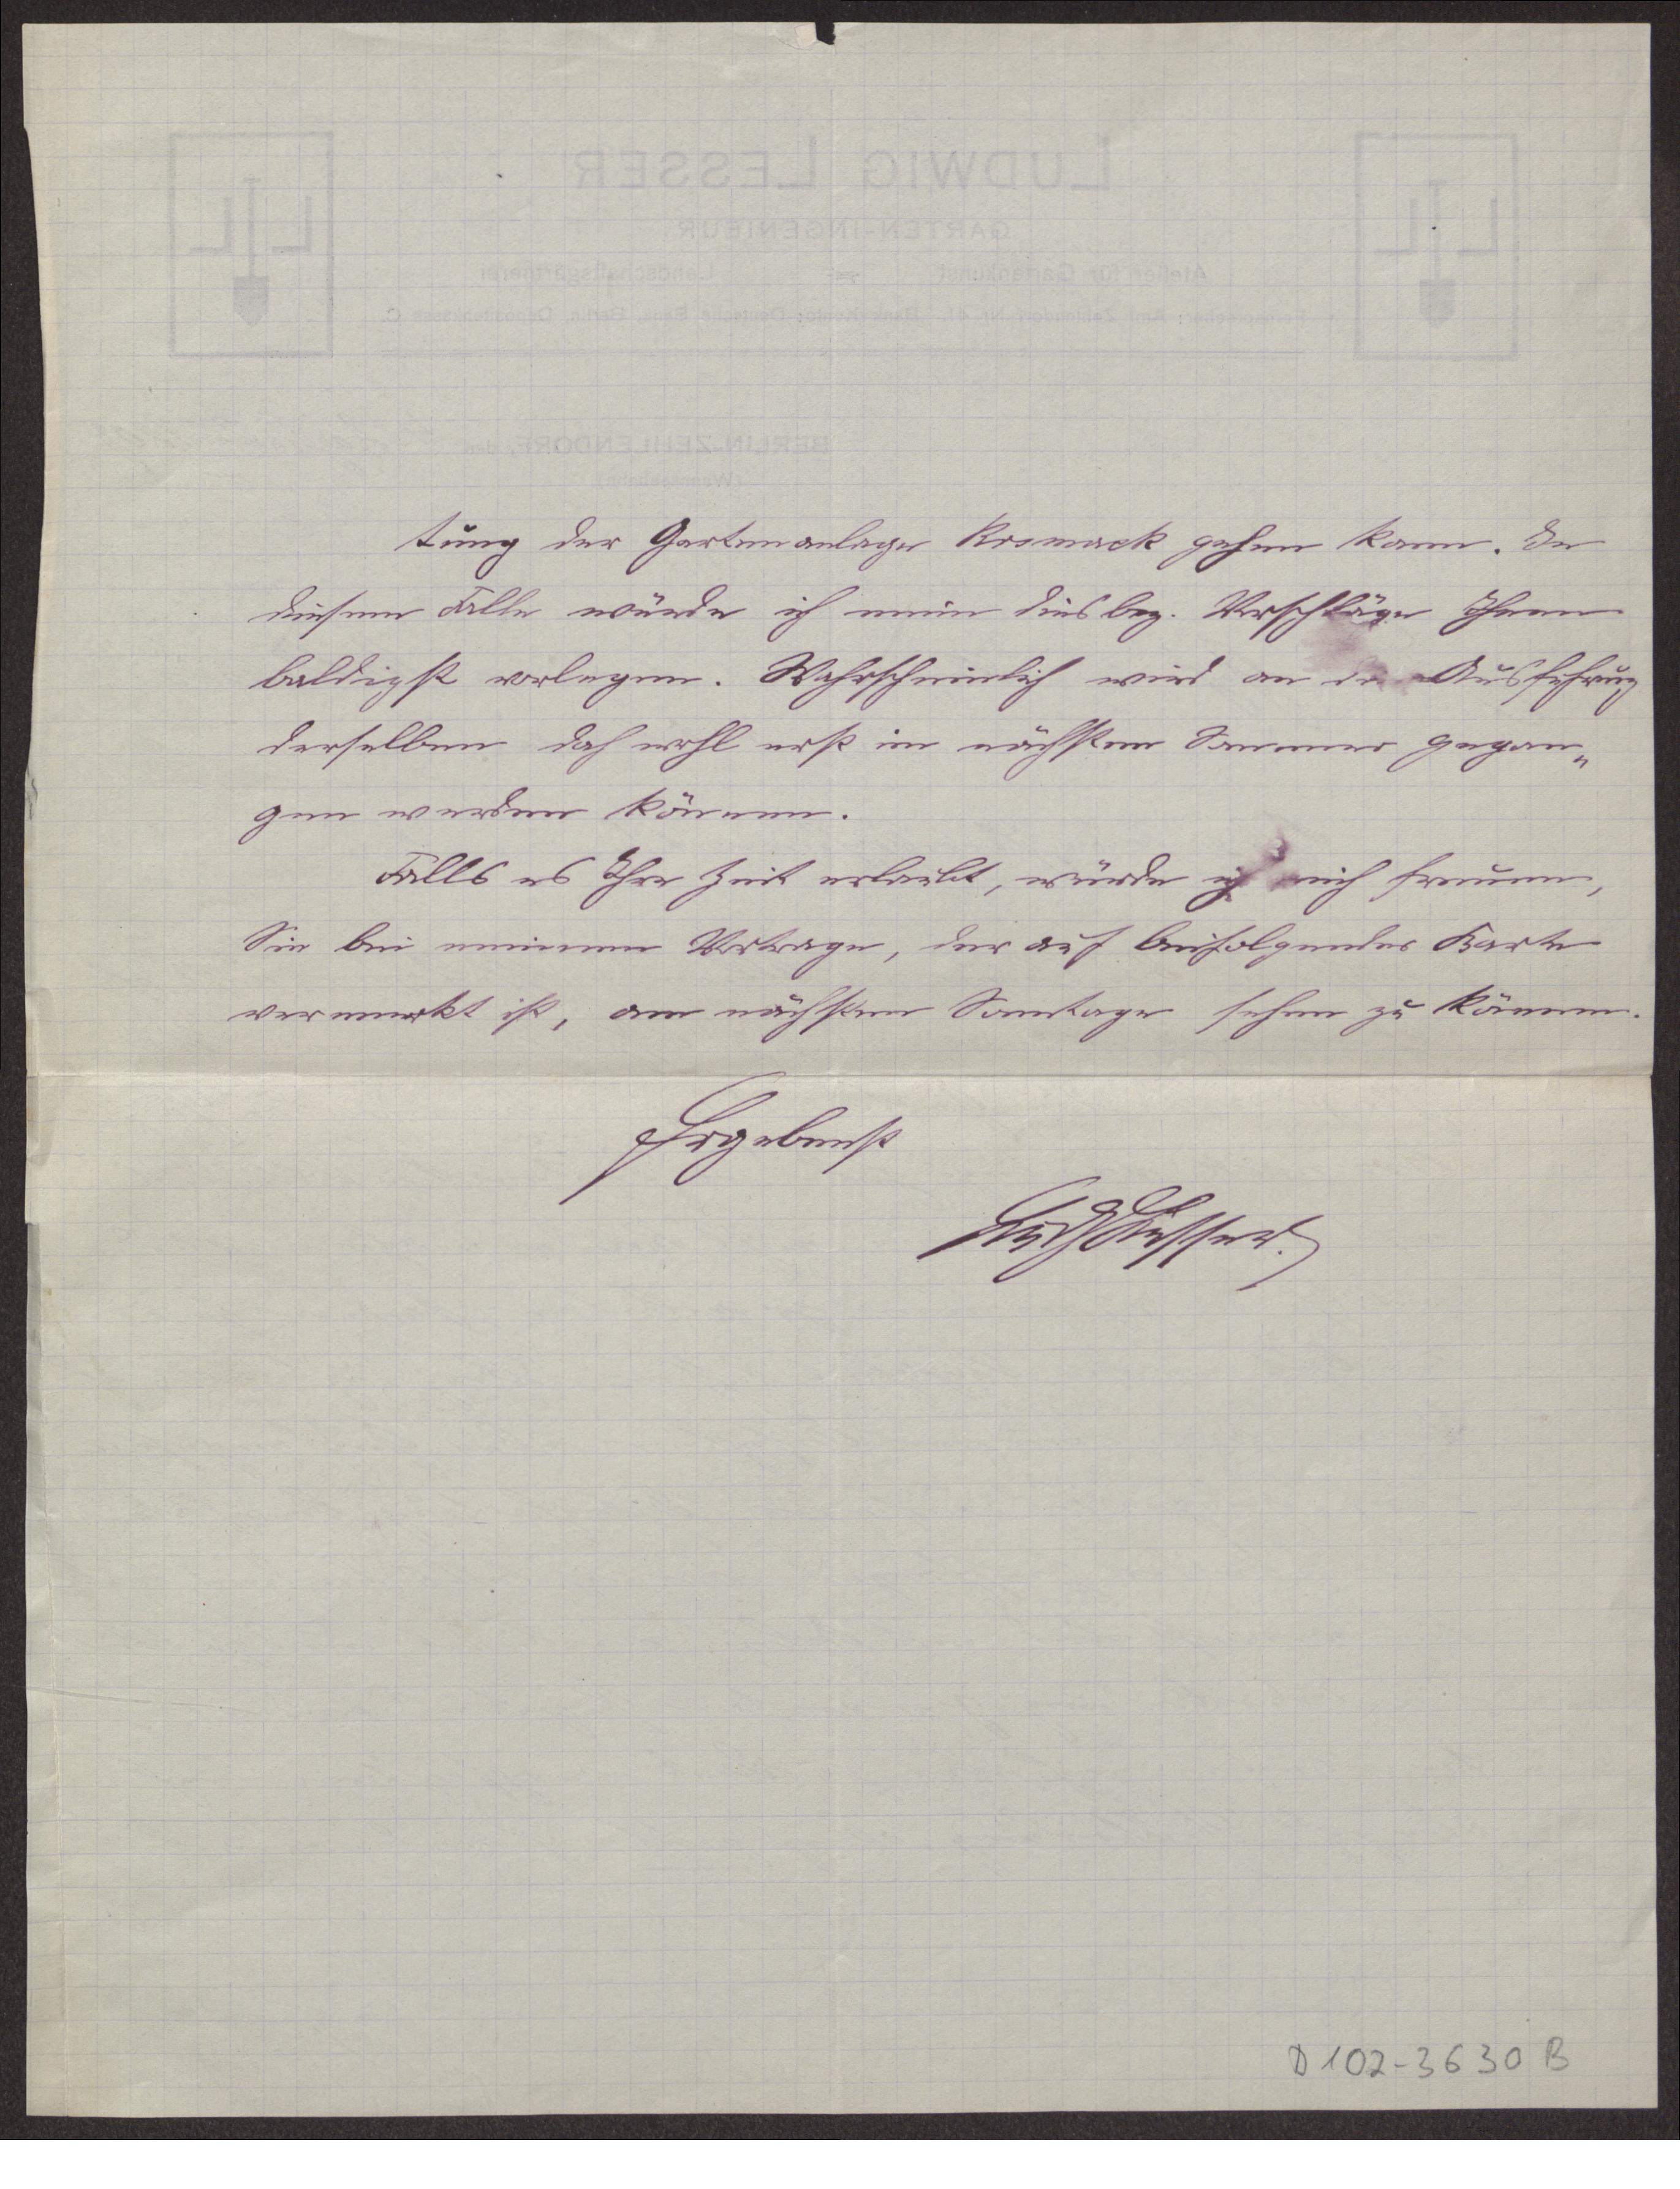 LUDWIG LESSER
GARTEN-INGENIEUR
Atelier für Gartenkunst Landschaftsgärtnerei
Fernsprecher: Amt Zehlendorf Nr. 41. Bank-Konto: Deutsche Bank, Berlin, Depositenkasse C.
BERLIN-ZEHLENDORF, den
(Wannseebahn)
tung der Gartenanlage gehen kann. In
diesem Falle würde ich meine diesbez. Vorschläge Ihnen
baldigst vorlegen. Wahrscheinlich wird an die Ausführung
derselben doch wohl erst im nächsten Sommer gegan„
gen werden können.
Falls es Ihre Zeit erlaubt, würde ich mich freuen,
Sie bei meinem Vortrage, der auf beifolgender Karte
vermerkt ist, am nächsten Sonntage sehen zu können.
Ergebenst
Ludw Lesser.
D 102-3630 B